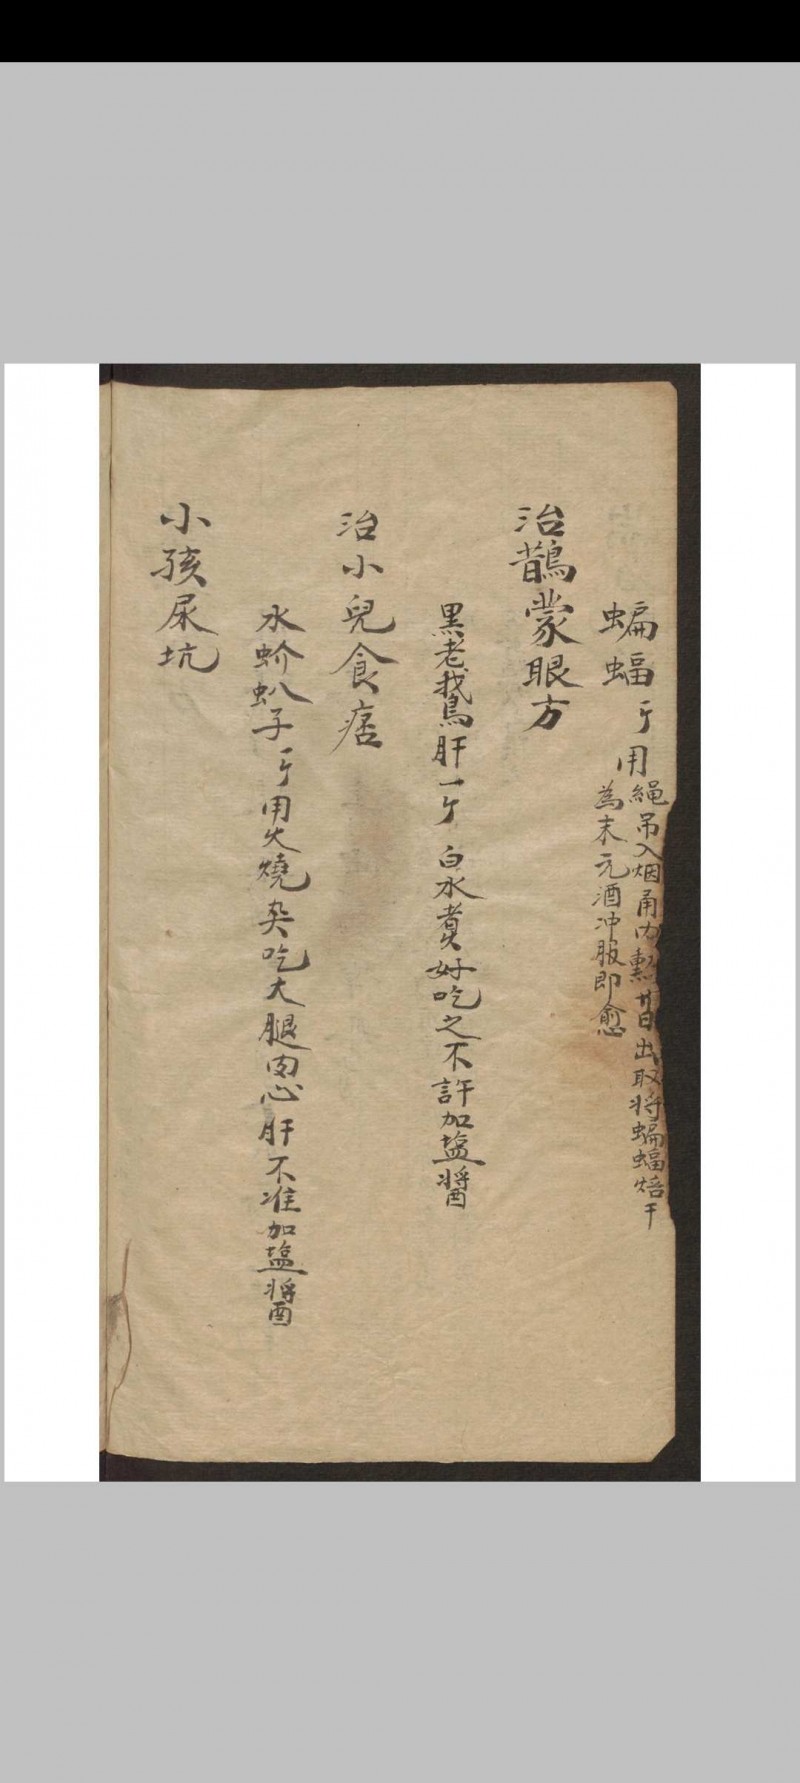 蝙蝠一个用
繩吊入烟甬內熏廿日出取将蝙蝠焙干
為末元酒冲服即愈
治鵲蒙眼方
黑老鵞肝一个 白水煮好吃之不許加塩醬
治小兒食痞
水蚧虯子一个用火燒吃大腿肉心肝不准加塩醬
小孩尿坑